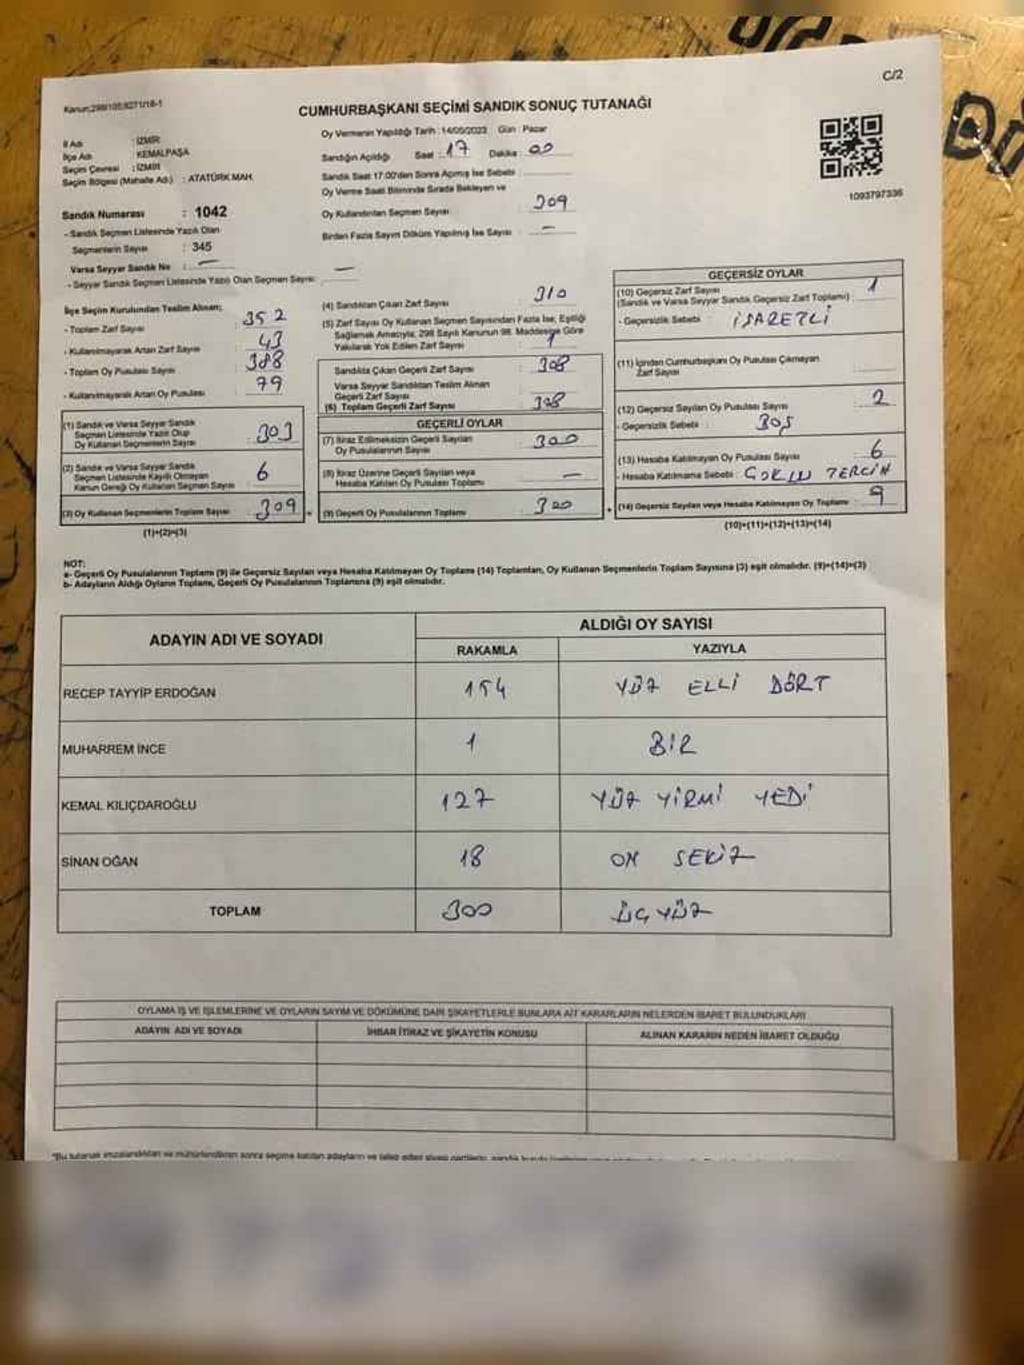 C/2
Kanun:298/105;6271/18-1
CUMHURBAŞKANI SEÇİMİ SANDIK SONUÇ TUTANAĞI
İl Adı : İZMİR
İlçe Adı : KEMALPAŞA
Seçim Çevresi : İZMİR
Seçim Bölgesi (Mahalle Adı) : ATATÜRK MAH.
Oy Vermenin Yapıldığı Tarih : 14/05/2023 Gün : Pazar
Sandığın Açıldığı Saat : 17 Dakika : 00
Sandık Saat 17.00'den Sonra Açılmış İse Sebebi :
Oy Verme Saati Bitiminde Sırada Bekleyen ve
Oy Kullandırılan Seçmen Sayısı 309
Birden Fazla Sayım Döküm Yapılmış İse Sayısı : —
1093797336
Sandık Numarası : 1042
- Sandık Seçmen Listesinde Yazılı Olan
Seçmenlerin Sayısı : 345
Varsa Seyyar Sandık No : —
- Seyyar Sandık Seçmen Listesinde Yazılı Olan Seçmen Sayısı: —
İlçe Seçim Kurulundan Teslim Alınan;
- Toplam Zarf Sayısı 352
- Kullanılmayarak Artan Zarf Sayısı : 43
- Toplam Oy Pusulası Sayısı 388
- Kullanılmayarak Artan Oy Pusulası : 79
(1) Sandık ve Varsa Seyyar Sandık
Seçmen Listesinde Yazılı Olup
Oy Kullanan Seçmenlerin Sayısı : 303
(2) Sandık ve Varsa Seyyar Sandık
Seçmen Listesinde Kayıtlı Olmayan
Kanun Gereği Oy Kullanan Seçmen Sayısı : 6
(3) Oy Kullanan Seçmenlerin Toplam Sayısı : 309
(1)+(2)=(3)
(4) Sandıktan Çıkan Zarf Sayısı : 310
(5) Zarf Sayısı Oy Kullanan Seçmen Sayısından Fazla İse, Eşitliği
Sağlamak Amacıyla; 298 Sayılı Kanunun 98. Maddesine Göre
Yakılarak Yok Edilen Zarf Sayısı : 1
Sandıkta Çıkan Geçerli Zarf Sayısı : 308
Varsa Seyyar Sandıktan Teslim Alınan
Geçerli Zarf Sayısı
(6) Toplam Geçerli Zarf Sayısı : 308
GEÇERLİ OYLAR
(7) İtiraz Edilmeksizin Geçerli Sayılan
Oy Pusulasının Sayısı : 300
(8) İtiraz Üzerine Geçerli Sayılan veya
Hesaba Katılan Oy Pusulası Toplamı : —
(9) Geçerli Oy Pusulalarının Toplamı : 300
GEÇERSİZ OYLAR
(10) Geçersiz Zarf Sayısı
(Sandık ve Varsa Seyyar Sandık Geçersiz Zarf Toplamı) : 1
- Geçersizlik Sebebi : İŞARETLİ
(11) İçinden Cumhurbaşkanı Oy Pusulası Çıkmayan
Zarf Sayısı
(12) Geçersiz Sayılan Oy Pusulası Sayısı : 2
- Geçersizlik Sebebi : BOŞ
(13) Hesaba Katılmayan Oy Pusulası Sayısı : 6
- Hesaba Katılmama Sebebi : ÇOKLU TERCİH
(14) Geçersiz Sayılan veya Hesaba Katılmayan Oy Toplamı : 9
(10)+(11)+(12)+(13)=(14)
NOT:
a- Geçerli Oy Pusulalarının Toplamı (9) ile Geçersiz Sayılan veya Hesaba Katılmayan Oy Toplamı (14) Toplamları, Oy Kullanan Seçmenlerin Toplam Sayısına (3) eşit olmalıdır. (9)+(14)=(3)
b- Adayların Aldığı Oyların Toplamı, Geçerli Oy Pusulalarının Toplamına (9) eşit olmalıdır.
ADAYIN ADI VE SOYADI ALDIĞI OY SAYISI
RAKAMLA YAZIYLA
RECEP TAYYİP ERDOĞAN 154 YÜZ ELLİ DÖRT
MUHARREM İNCE 1 BİR
KEMAL KILIÇDAROĞLU 127 YÜZ YİRMİ YEDİ
SİNAN OĞAN 18 ON SEKİZ
TOPLAM 300 ÜÇ YÜZ
OYLAMA İŞ VE İŞLEMLERİNE VE OYLARIN SAYIM VE DÖKÜMÜNE DAİR ŞİKAYETLERLE BUNLARA AİT KARARLARIN NELERDEN İBARET BULUNDUKLARI
ADAYIN ADI VE SOYADI İHBAR İTİRAZ VE ŞİKAYETİN KONUSU ALINAN KARARIN NEDEN İBARET OLDUĞU
"Bu tutanak imzalandıktan ve mühürlendikten sonra seçime katılan adayların ve talep eden siyasi partilerin,